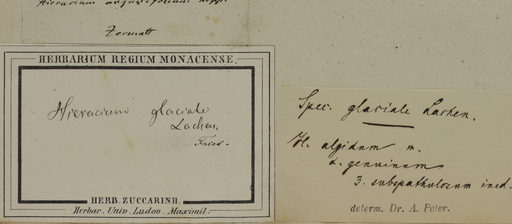 Hieracium angustifolium Hopp.
Zermatt
HERBARIUM REGIUM MONACENSE.
Hieracium glaciale
Lachen.
HERB. ZUCCARINII.
Herbar. Univ. Ludov. Maximil.
Spec. glaciale Lachen.
H. algidum m.
α. genuinum
3. subspathulosum ined.
determ. Dr. A. Peter.